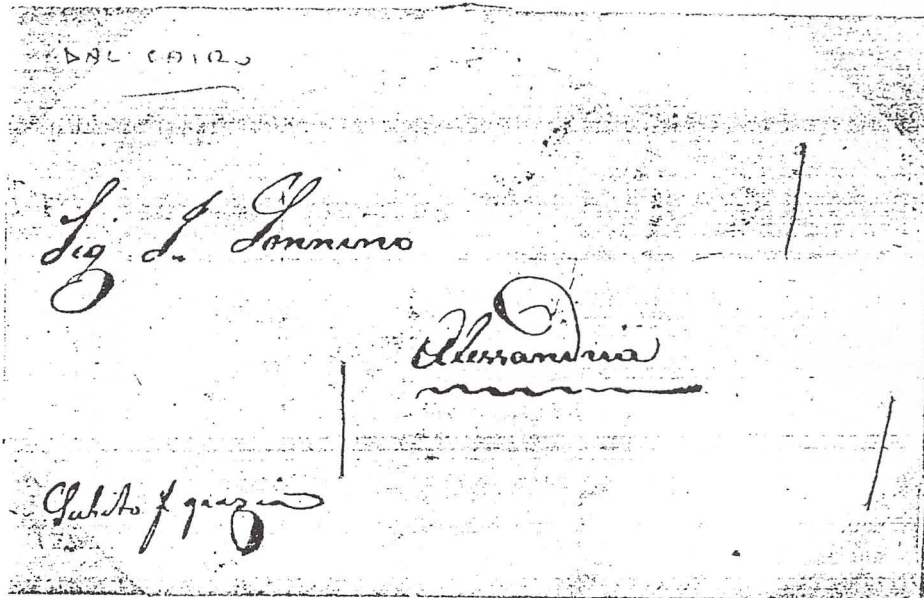 DAL CAIRO
Sig. I. Sonnino
Alessandria
Subito p grazia